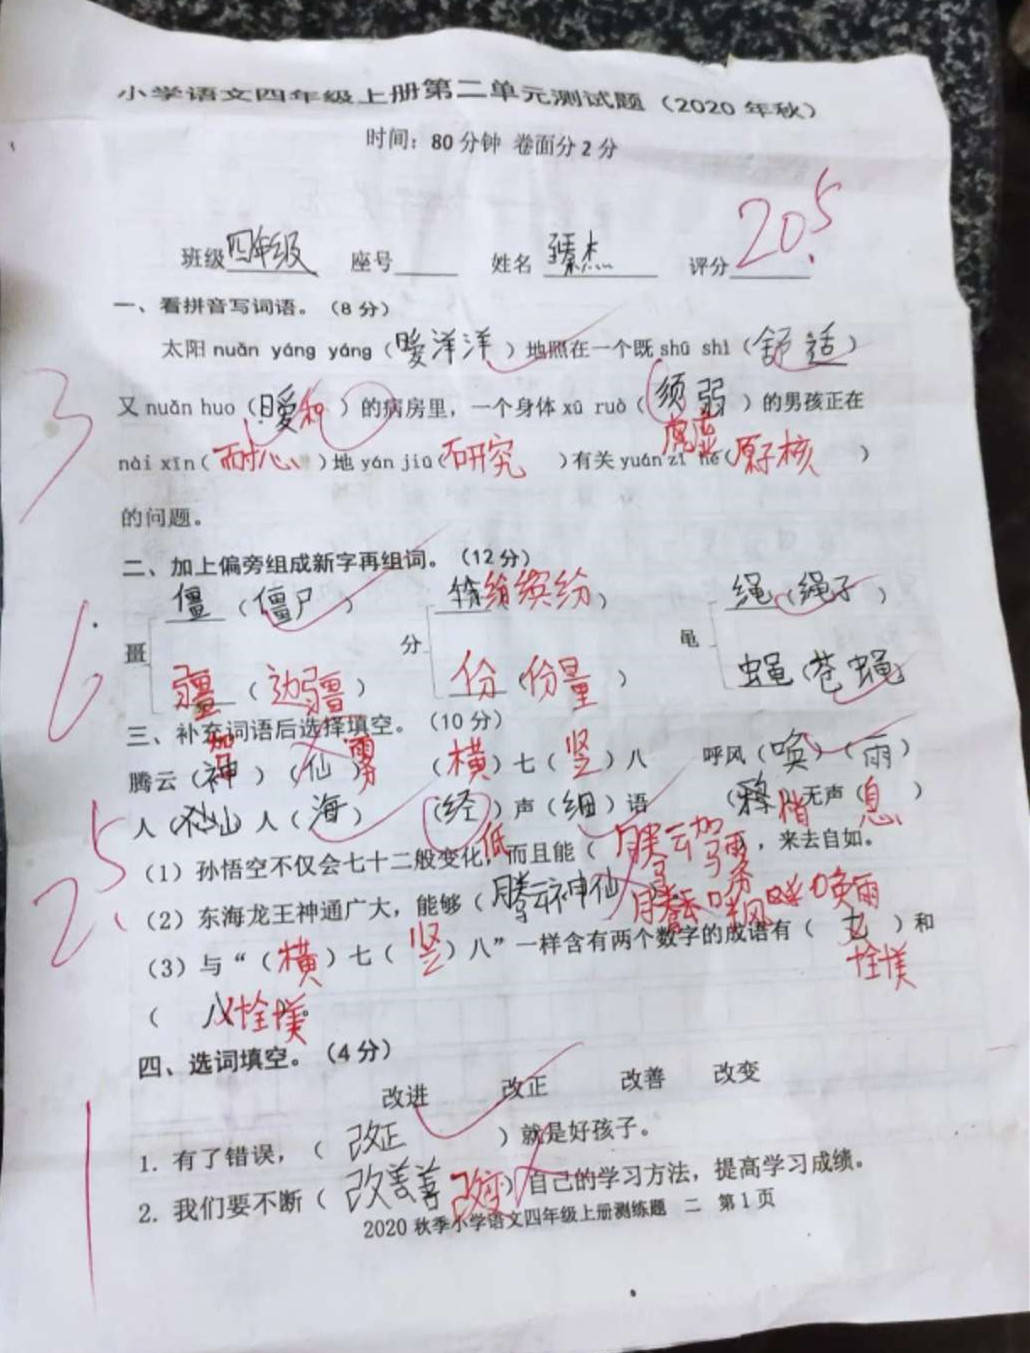 小学语文四年级上册第二单元测试题（2020 年秋）
时间：80 分钟 卷面分 2 分
20.5
班级 四年级 座号 姓名 臻杰 评分
一、看拼音写词语。（8 分）
太阳 nuǎn yáng yáng（暖洋洋）地照在一个既 shū shì（舒适）
3
又 nuǎn huo（暖和）的病房里，一个身体 xū ruò（须弱）的男孩正在
虚
nài xīn（耐心）地 yán jiū（研究）有关 yuán zǐ hé（原子核）
的问题。
二、加上偏旁组成新字再组词。（12 分）
僵（僵尸） 缤纷） 绳（绳子）
畺 分 黾
6
疆（边疆） 份（份量） 蝇（苍蝇）
三、补充词语后选择填空。（10 分）
腾云（神）（仙） （横）七（竖）八 呼风（唤）（雨）
驾 雾
人（山）人（海） （经）声（细）语 （悄）无声（息）
低
2.5
（1）孙悟空不仅会七十二般变化，而且能（ 腾云驾雾 ，来去自如。
（2）东海龙王神通广大，能够（腾云神仙 呼风唤雨
（3）与“（横）七（竖）八”一样含有两个数字的成语有（ 七 ）和
（ 八
四、选词填空。（4 分）
改进 改正 改善 改变
1
1. 有了错误，（ 改正 ）就是好孩子。
2. 我们要不断（ 改善善 改变）自己的学习方法，提高学习成绩。
2020 秋季小学语文四年级上册测练题 二 第 1 页